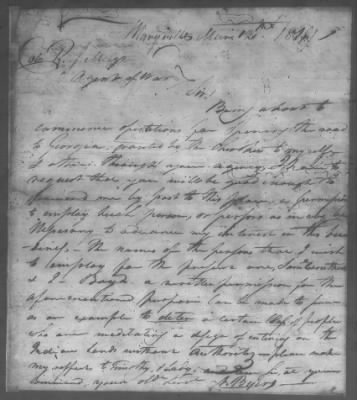 Maryville
Agent of War
Sir!
Being about to
commence opperations for opening the road
to Georgia, granted by the Cherokees to myself
& others. through your agency, I have to
request that you will be good enough to
forward me by post to this place, a permission
to employ such persons, or person as may be
necessary to advance my interest in this bus-
iness. The names of the persons that I wish
to employ for the purpose are,
& J. Boyd a written permission for the
aforementioned purpose can be made to serve
as an example to deter a certain class of people
who are meditating a design of entering on the
Indian lands without authority, please make
my respects to Timothy, & Lady, and
command, your old Servt